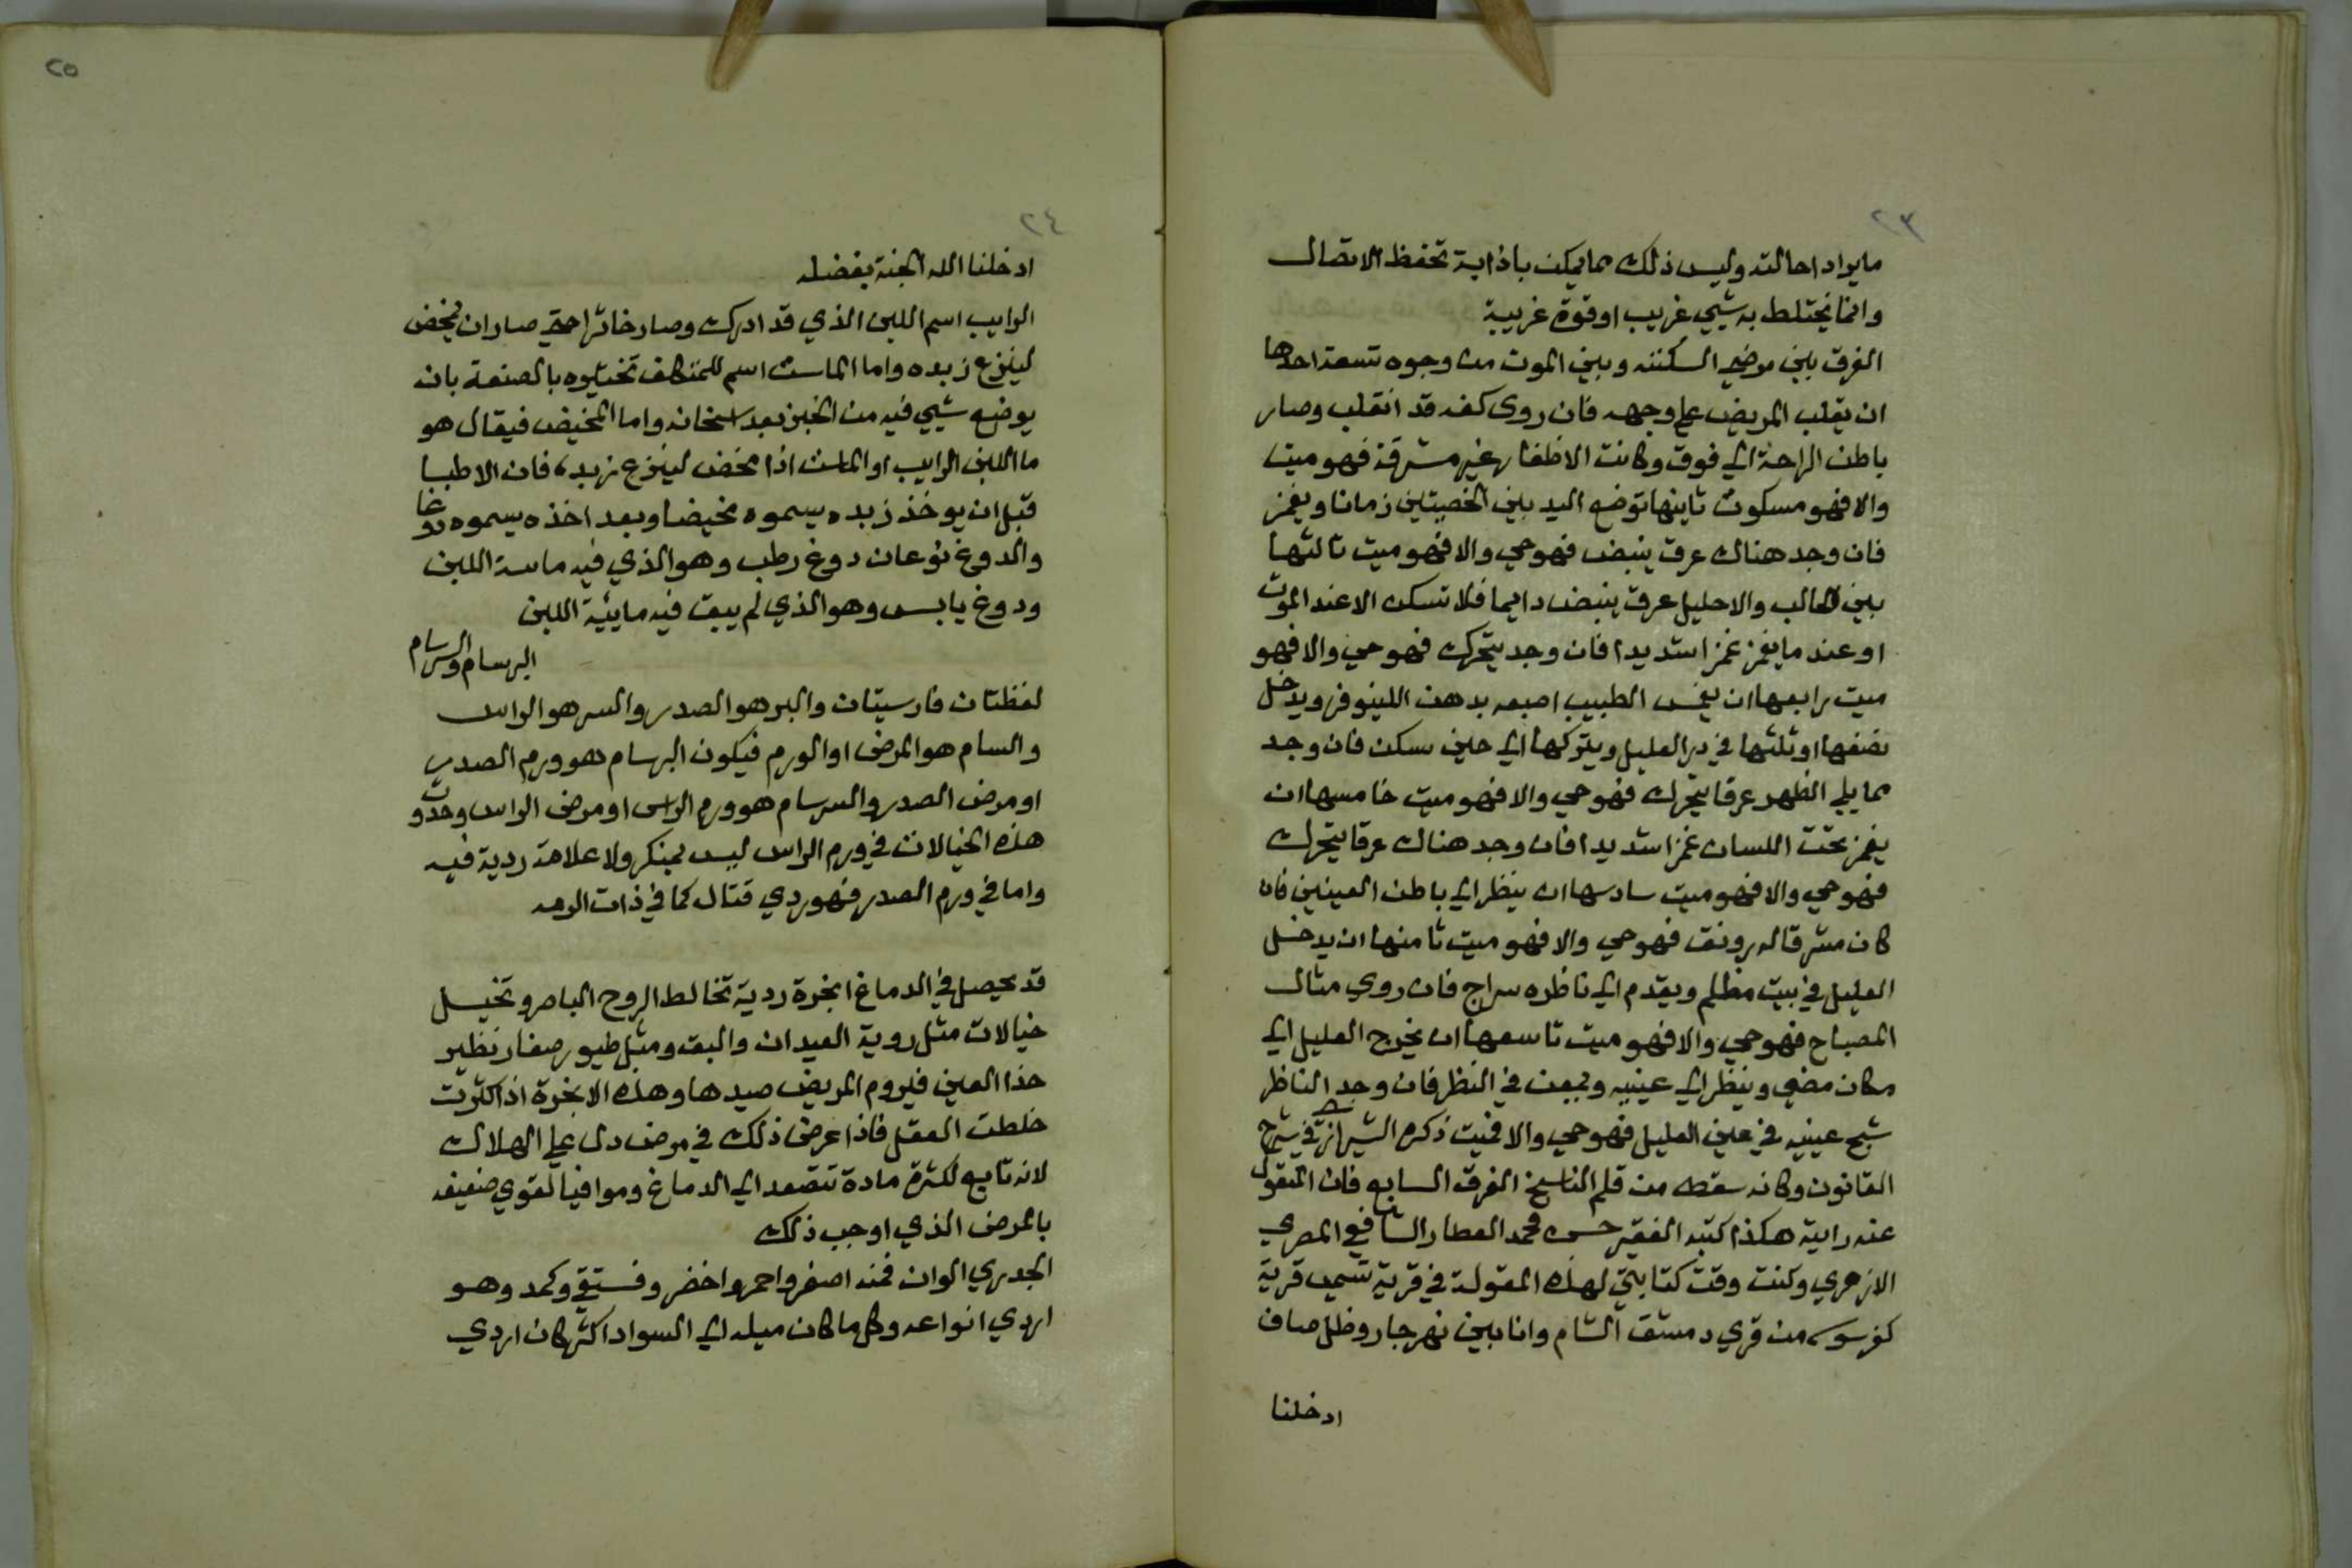 ٢٣
ما يراد احالته وليس ذلك مما يمكن باذابة تحفظ الاتصال
وانما يختلط به شيي غريب او قوة غريبة
الفرق بين مرضي السكتة وبين الموت من وجوه تسعة احدها
ان يقلب المريض علي وجهه فان روى كفه قد انقلب وصار
باطن الراحة الي فوق وكانت الاظفار غير مشرقة فهو ميت
والا فهو مسكوت ثانيها توضع اليد بين الخصيتين زمانا ويغمز
فان وجد هناك عرق ينبض فهو حي والا فهو ميت ثالثها
بين الحالب والاحليل عرق ينبض دايما فلا تسكن الا عند الموت
او عند ما يغمز غمزا شديدا فان وجد يتحرك فهو حي والا فهو
ميت رابعها ان يغمس الطبيب اصبعه بدهن اللينوفر ويدخل
نصفها او ثلثها في دبر العليل ويتركها الي حين تسكن فان وجد
مما يلي الظهر عرقا يتحرك فهو حي والا فهو ميت خامسها ان
يغمز تحت اللسان غمزا شديدا فان وجد هناك عرقا يتحرك
فهو حي والا فهو ميت سادسها ان ينظر الي باطن العينين فان
كان مشرقا له رونق فهو حي والا فهو ميت ثامنها ان يدخل
العليل في بيت مظلم ويقدم الي ناظره سراج فان روي مثال
المصباح فهو حي والا فهو ميت تاسعها ان يخرج العليل الي
مكان مضي وينظر الي عينيه ويمعن في النظر فان وجد الناظر
شبح عينيه في عين العليل فهو حي والا فميت ذكره الشيرازي في شرح
القانون وكانه سقط من قلم الناسخ الفرق السابع فان المنقول
عنه رايته هكذا كتبه الفقير حسن محمد العطار الشافعي المصري
الازهري وكنت وقت كتابتي لهذه المقولة في قرية تسمى قرية
كفرسوسه من قري دمشق الشام وانا بين نهر جار وظل صاف
ادخلنا
٢٤
٢٥
ادخلنا الله الجنة بفضله
الرايب اسم اللبن الذي قد ادرك وصار خاثرا حتي صار ان يمخض
لينزع زبده واما الماست اسم للمتكاثف تخثيره بالصنعة بان
يوضع شيي فيه من الخبز بعد اسخانه واما المخيض فيقال هو
ما اللبن الرايب او الماست اذا مخض لينزع زبده فان الاطبا
قبل ان يوخذ زبده يسموه مخيضا وبعد اخذه يسموه دوغا
والدوغ نوعان دوغ رطب وهو الذي فيه ماية اللبن
ودوغ يابس وهو الذي لم يبق فيه مايئية اللبن
البرسام والسرسام
لفظتان فارسيتان والبر هو الصدر والسر هو الراس
والسام هو المرض او الورم فيكون البرسام هو ورم الصدر
او مرض الصدر والسرسام هو ورم الراس او مرض الراس وحدوث
هذه الخيالات في ورم الراس ليس بمنكر ولا علامة ردية فيه
واما في ورم الصدر فهو ردي قتال كما في ذات الريه
قد يحصل في الدماغ ابخرة ردية تخالط الروح الباصر وتخيل
خيالات مثل روية العيدان والبق ومثل طيور صغار تطير
حذا العين فيروم المريض صيدها وهذه الابخرة اذا كثرت
خلطت العقل فاذا عرض ذلك في مرض دل علي الهلاك
لانه تابع لكثرة مادة تتصعد الي الدماغ وموافيا لقوي ضعيفه
بالمرض الذي اوجب ذلك
الجدري الوان فمنه اصفر واحمر واخضر وفستقي وكمد وهو
اردي انواعه وكل ما كان ميله الي السواد اكثر كان اردي